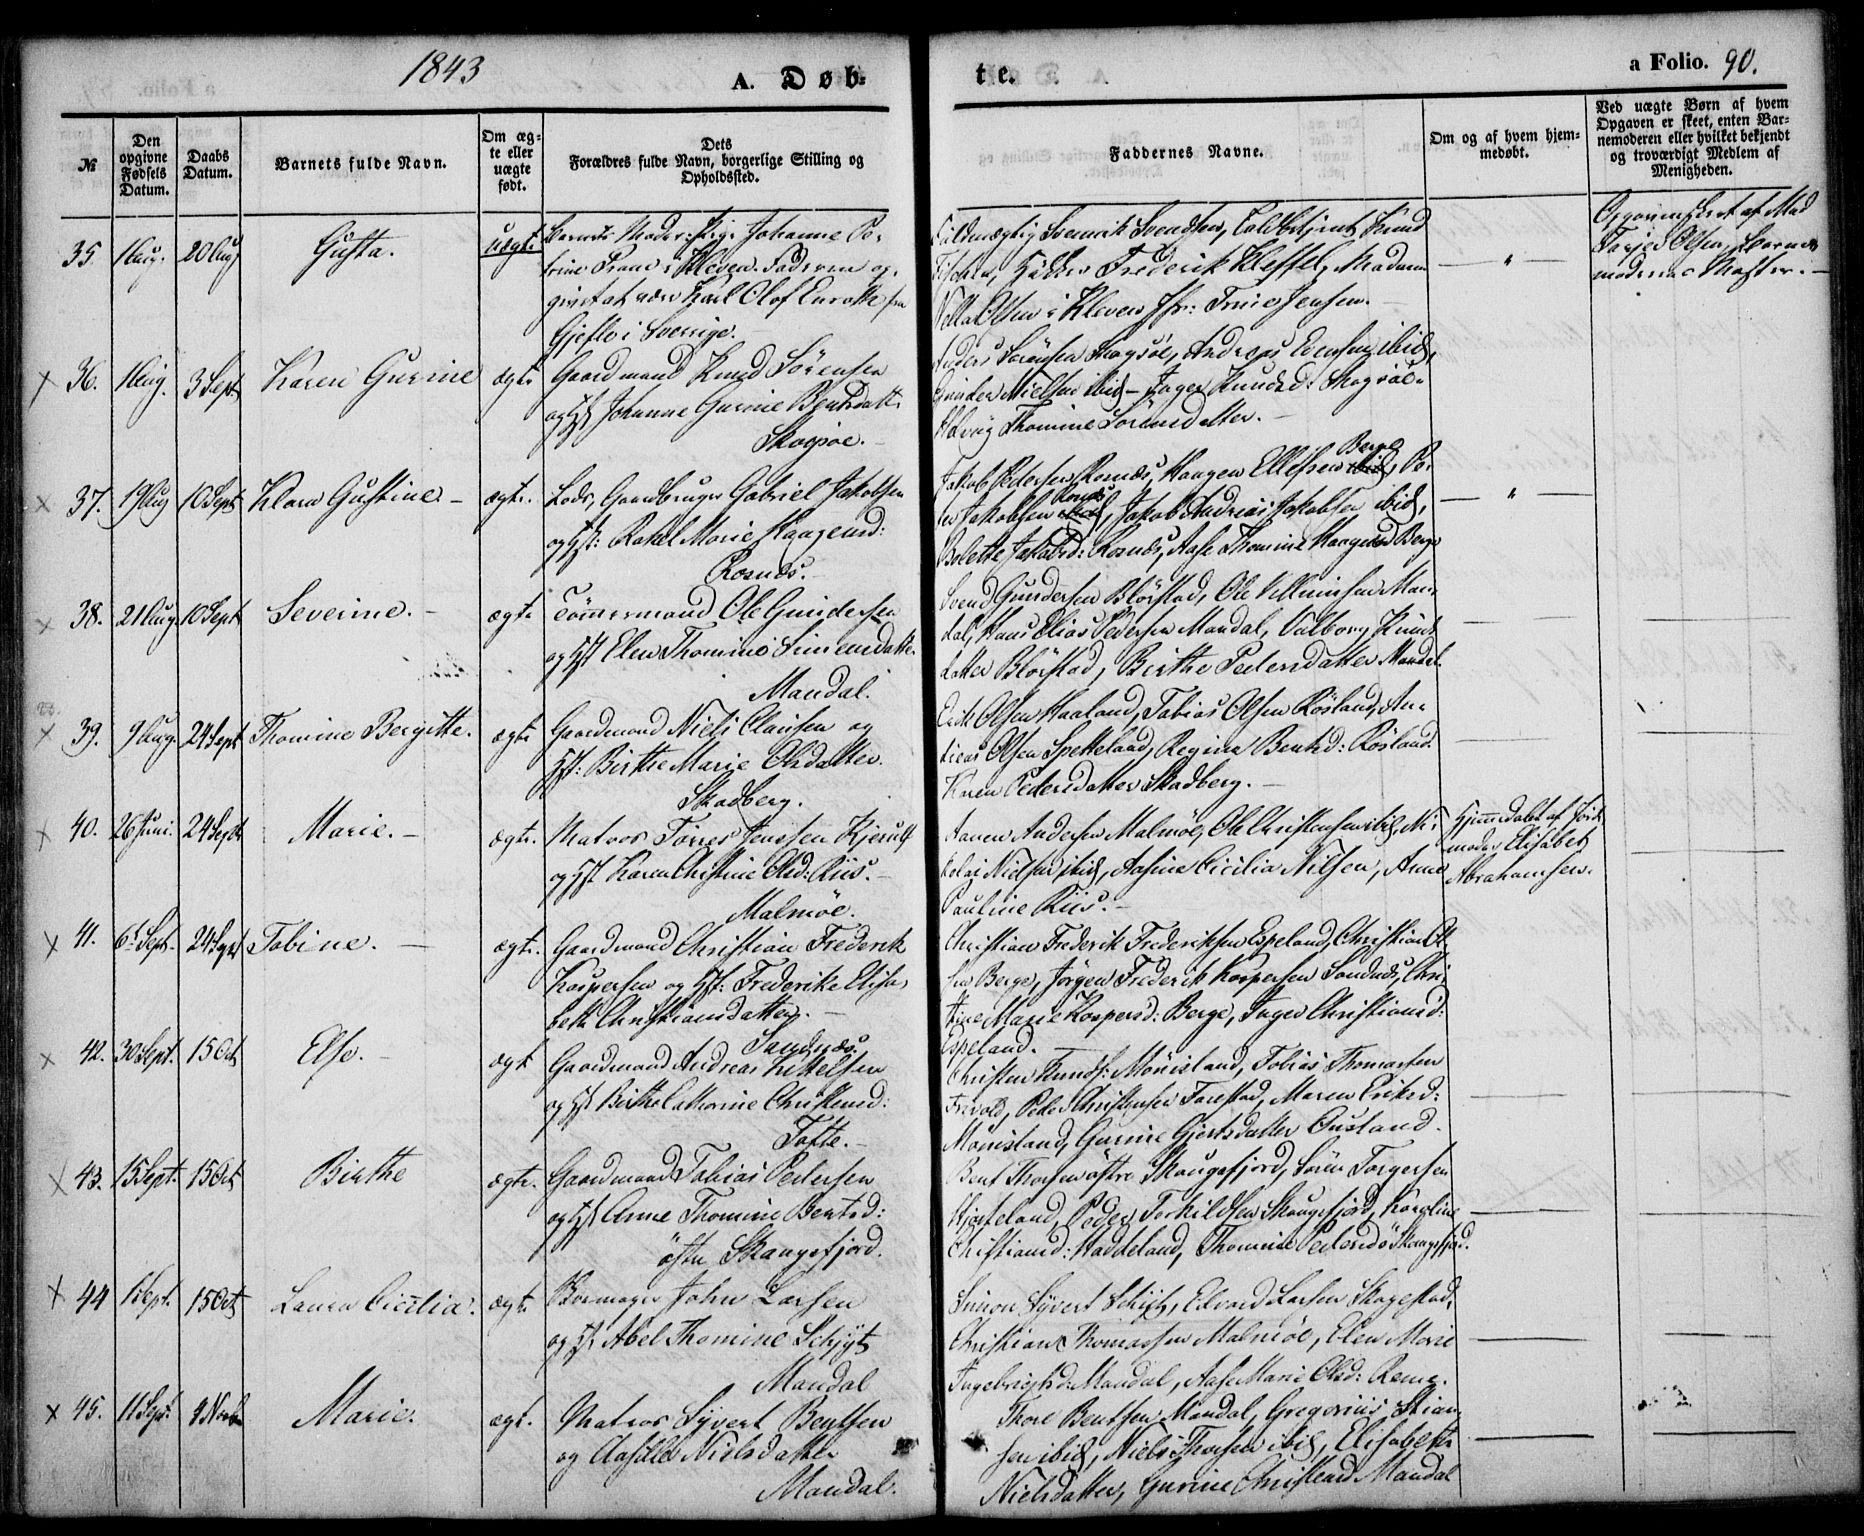 1843
A. Døb-
te.
a Folio. 90.
№
Den opgivne Fødsels Datum.
Daabs Datum.
Barnets fulde Navn.
Om ægte eller uægte født.
Dets
Forældres fulde Navn, borgerlige Stilling og
Opholdssted.
Faddernes Navne.
Om og af hvem hjem-
medøbt.
Ved uægte Børn af hvem
Opgaven er skeet, enten Bar-
nemoderen eller hvilket bekjendt
og troværdigt Medlem af
Menigheden.
35. 1 Aug. 20 Aug Gusta. uægte
Barnets Moder: Pige Johanne Pe-
trine i Kleven. Faderen op-
givet at være Karl Olof fra
Gjefle i Sverrige.
Svendsen, Knud
Frederik Kleffel, Madam
Olsen i Kleven Jfr: Trine Jensen.
Opgaven skeet af Mad
Tarjer Olsen, Barne
moderens
36. 1 Aug. 3 Sept Karen Gurine ægte
Gaardmand Knud Sörensen
og Hst Johanne Gurine Bentsdatt.
Skogsøe.
Anders Sörensen Skogsöe, Andreas Evensen ibid,
Gunder Nielsen ibid - Inger Knudsd: Skogsöe
Thomine Sörensdatter.
37. 19 Aug 10 Sept Klara Gustine. ægte.
Lods, Gaardbruger Gabriel Jakobsen
og Hst: Rakel Marie Haagensd:
Rosnæs.
Jakob Pedersen Rosnæs, Haagen Ellefsen Berge, Pe-
der Jakobsen Rosnæs, Jakob Andreas Jakobsen ibid,
Bolette Jakobsd: Rosnæs, Aase Thomine Haagensd Berge
38. 21 Aug. 10 Sept Severine. ægte
Tömmermand Ole Gundersen
og Hst Elen Thomine Simensdatter.
Mandal.
Svend Gundersen Blörstad, Ole Villumsen Man-
dal, Hans Elias Pedersen Mandal, Valborg Knuds
datter Blörstad, Birthe Pedersdatter Mandal.
39. 9 Aug. 24 Sept Thomine Bergitte. ægte
Gaardmand Niels Clausen og
Hst: Birthe Marie Olsdatter.
Skadberg.
Erik Olsen Haaland, Tobias Olsen Rösland, An-
dreas Olsen Spetteland, Regina Bentsd: Rösland.
Karen Pedersdatter Skadberg.
40. 26 Juni. 24 Sept Marie. ægte.
Matros Törres Jenssen Kjerulf
og Hst Karen Christine Olsd: Riis.
Malmøe.
Aanen Andersen Malmöe, Ole Christensen ibid, Ni-
kolai Nielsen ibid, Aasine Cicilia Nilsen, Anne
Pauline Riis.
Hjemmedøbt af Jord
moder Elisabet
Abrahamsen.
41. 6 Sept. 24 Sept Tobine. ægte.
Gaardmand Christian Frederik
Kaspersen og Hst: Frederikke Elisa-
beth Christiansdatter.
Sandnæs
Christian Frederik Frederiksen Espeland, Christian Ol-
sen Berge, Jörgen Frederik Kaspersen Sandnæs, Chri-
stine Marie Kaspersd: Berge, Inger Christiansd:
Espeland.
42. 30 Sept. 15 Oct Else. ægte
Gaardmand Andreas Kittelsen
og Hst Birthe Cathrine Christensd:
Tofte.
Christen Knuds: Mönisland, Tobias Thomassen
Peder Christensen Farestad, Maren Eriksd:
Mönisland, Gurine Gjertsdatter Ousland.
43. 15 Sept. 15 Oct Birthe ægte.
Gaardmand Tobias Pedersen
og Hst Anne Thomine Bentsd:
östre Skaugsfjord.
Bent Thorsen östre Skougsfjord, Sören Torgersen
Hjorteland, Peder Torkildsen Skougsfjord, Karoline
Christiansd: Haddeland, Thomine Pedersd ö Skaugsfjord.
44 1 Sept. 15 Oct Laura Cicilia. ægte
John Larsen
og Hst Abel Thomine Schjÿt
Mandal
Simon Sÿvert Schÿt, Edvard Larsen Skogestad,
Christian Thomassen Malmöe, Elen Marie
Ingebrigtsd: Mandal, Aase Marie Olsd: Reme.
45. 11 Sept. 9 Novbr Marie. ægt.
Matros Sÿvert Bentsen
og Aasille Nielsdatter
Mandal.
Thore Bentsen Mandal, Gregorius Stian-
sen ibid, Niels Thorsen ibid, Elisabeth
Nielsdatter, Gurine Christensd Mandal